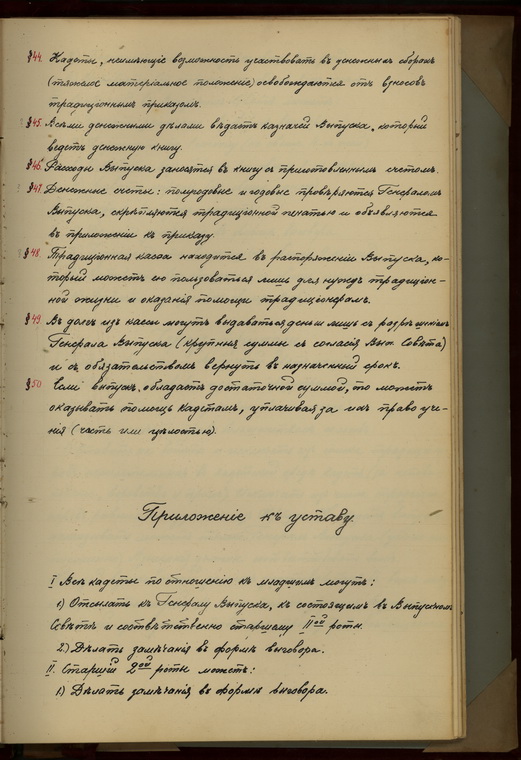 §44. Кадеты, неимѣющіе возможность участвовать въ денежныхъ сборахъ
(тяжелое матеріальное положеніе) освобождаются отъ взносовъ
традиціоннымъ приказомъ.
§45. Всѣми денежными дѣлами вѣдаетъ казначей Выпуска, который
ведетъ денежную книгу.
§46. Расходы Выпуска заносятся въ книгу съ приготовленнымъ счетомъ.
§47. Денежные счеты: полугодовые и годовые провѣряются Генераломъ
Выпуска, скрѣпляются традиціонной печатью и объявляются
въ приложеніи къ приказу.
§48. Традиціонная касса находится въ распоряженіи Выпуска, ко-
торый можетъ ею пользоваться лишь для нуждъ традиціон-
ной жизни и оказанія помощи традиціонерамъ.
§49. Въ долгъ изъ кассы могутъ выдаваться деньги лишь съ разрѣшенія
Генерала Выпуска (крупныя суммы съ согласія Вып. Совѣта)
и съ обязательствомъ вернуть въ назначенный срокъ.
§50 Если выпускъ обладаетъ достаточной суммой, то можетъ
оказывать помощь кадетамъ, уплачивая за нихъ право уче-
нія (часть или цѣлостью).
Приложеніе къ уставу.
I Всѣ кадеты по отношенію къ младшимъ могутъ:
1) Отсылать къ Генералу Выпуска, къ состоящимъ въ Выпускномъ
Совѣтѣ и соотвѣтственно старшему IIой роты.
2) Дѣлать замѣчанія въ формѣ выговора.
II. Старшій 2ой роты можетъ:
1) Дѣлать замѣчанія въ формѣ выговора.